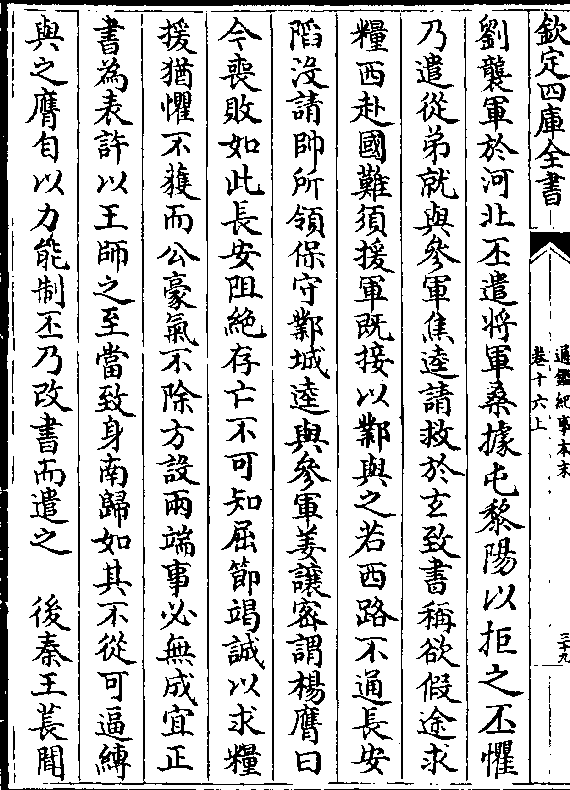 欽定四庫全書
通鑑紀事本末
卷十六上
三十九
劉襲軍於河北丕遣將軍桑據屯黎陽以拒之丕懼
乃遣從弟就與參軍焦逵請救於玄致書稱欲假途求
糧西赴國難須援軍既接以鄴與之若西路不通長安
陷沒請帥所領保守鄴城逵與參軍姜讓密謂楊膺曰
今喪敗如此長安阻絶存亡不可知屈節竭誠以求糧
援猶懼不獲而公豪氣不除方設兩端事必無成宜正
書為表許以王師之至當致身南歸如其不從可逼縛
與之膺自以力能制丕乃改書而遣之　後秦王萇聞